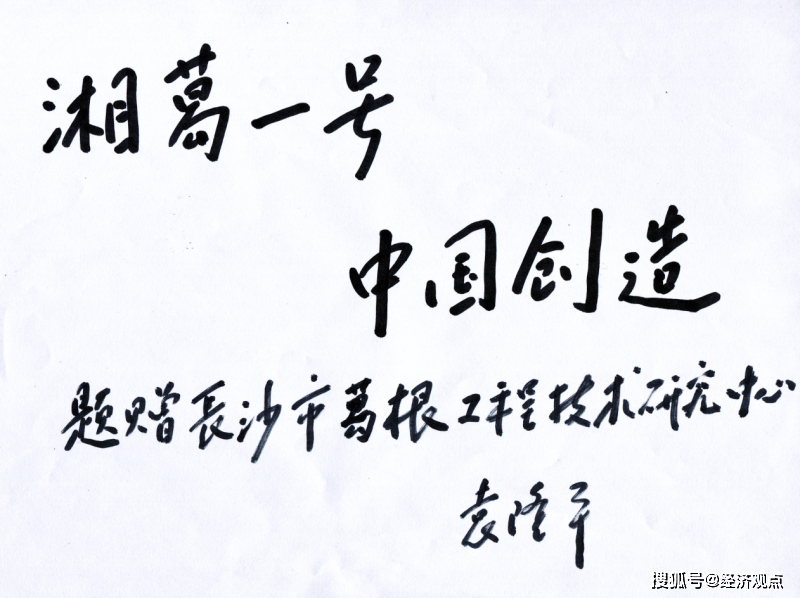 湘葛一号
中国创造
题赠長沙市葛根工程技术研究中心
袁隆平
搜狐号@经济观点